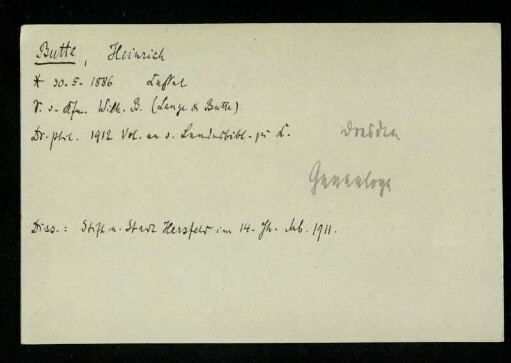 Butte, Heinrich
* 30.5.1886 Kassel
V. v. Kfm. Wilh. B. (Lange & Butte)
Dr. phil. 1912 Vol. an d. Landesbibl. zu K.
Dresden
Genealoge
Diss.: Stift u. Stadt Hersfeld im 14. Jh. Mb. 1911.